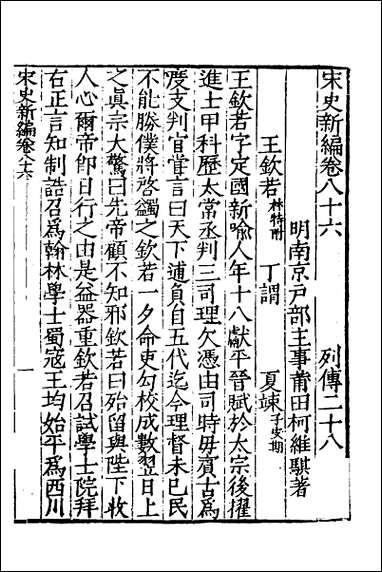 宋史新編卷八十六　列傳二十八
明南京戶部主事莆田柯維騏著
王欽若林特附　丁謂　夏竦子安期
王欽若字定國新喻人年十八獻平晉賦於太宗後擢
進士甲科歷太常丞判三司理欠憑由司時毋賓古爲
度支判官嘗言曰天下逋負自五代迄今理督未已民
不能勝僕將啓蠲之欽若一夕命吏勾校成數翌日上
之眞宗大驚曰先帝顧不知邪欽若曰殆留與陛下收
人心爾帝卽日行之由是益器重欽若召試學士院拜
右正言知制誥召爲翰林學士蜀寇王均始平爲西川
宋史新編卷八十六　一